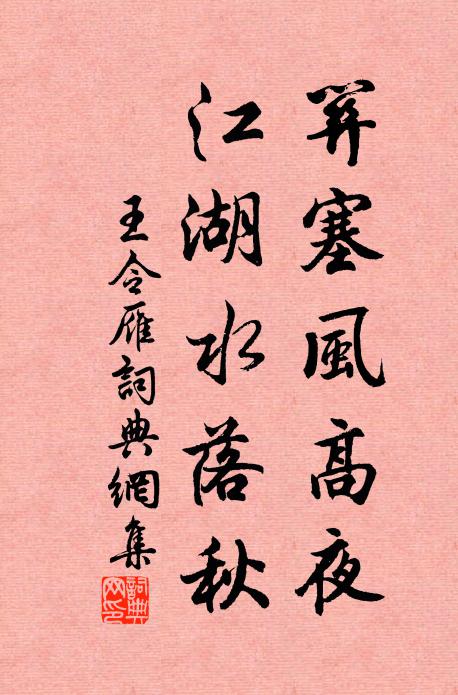 關塞風高夜
江湖水落秋
王令雁詞典網集
詞典
网印